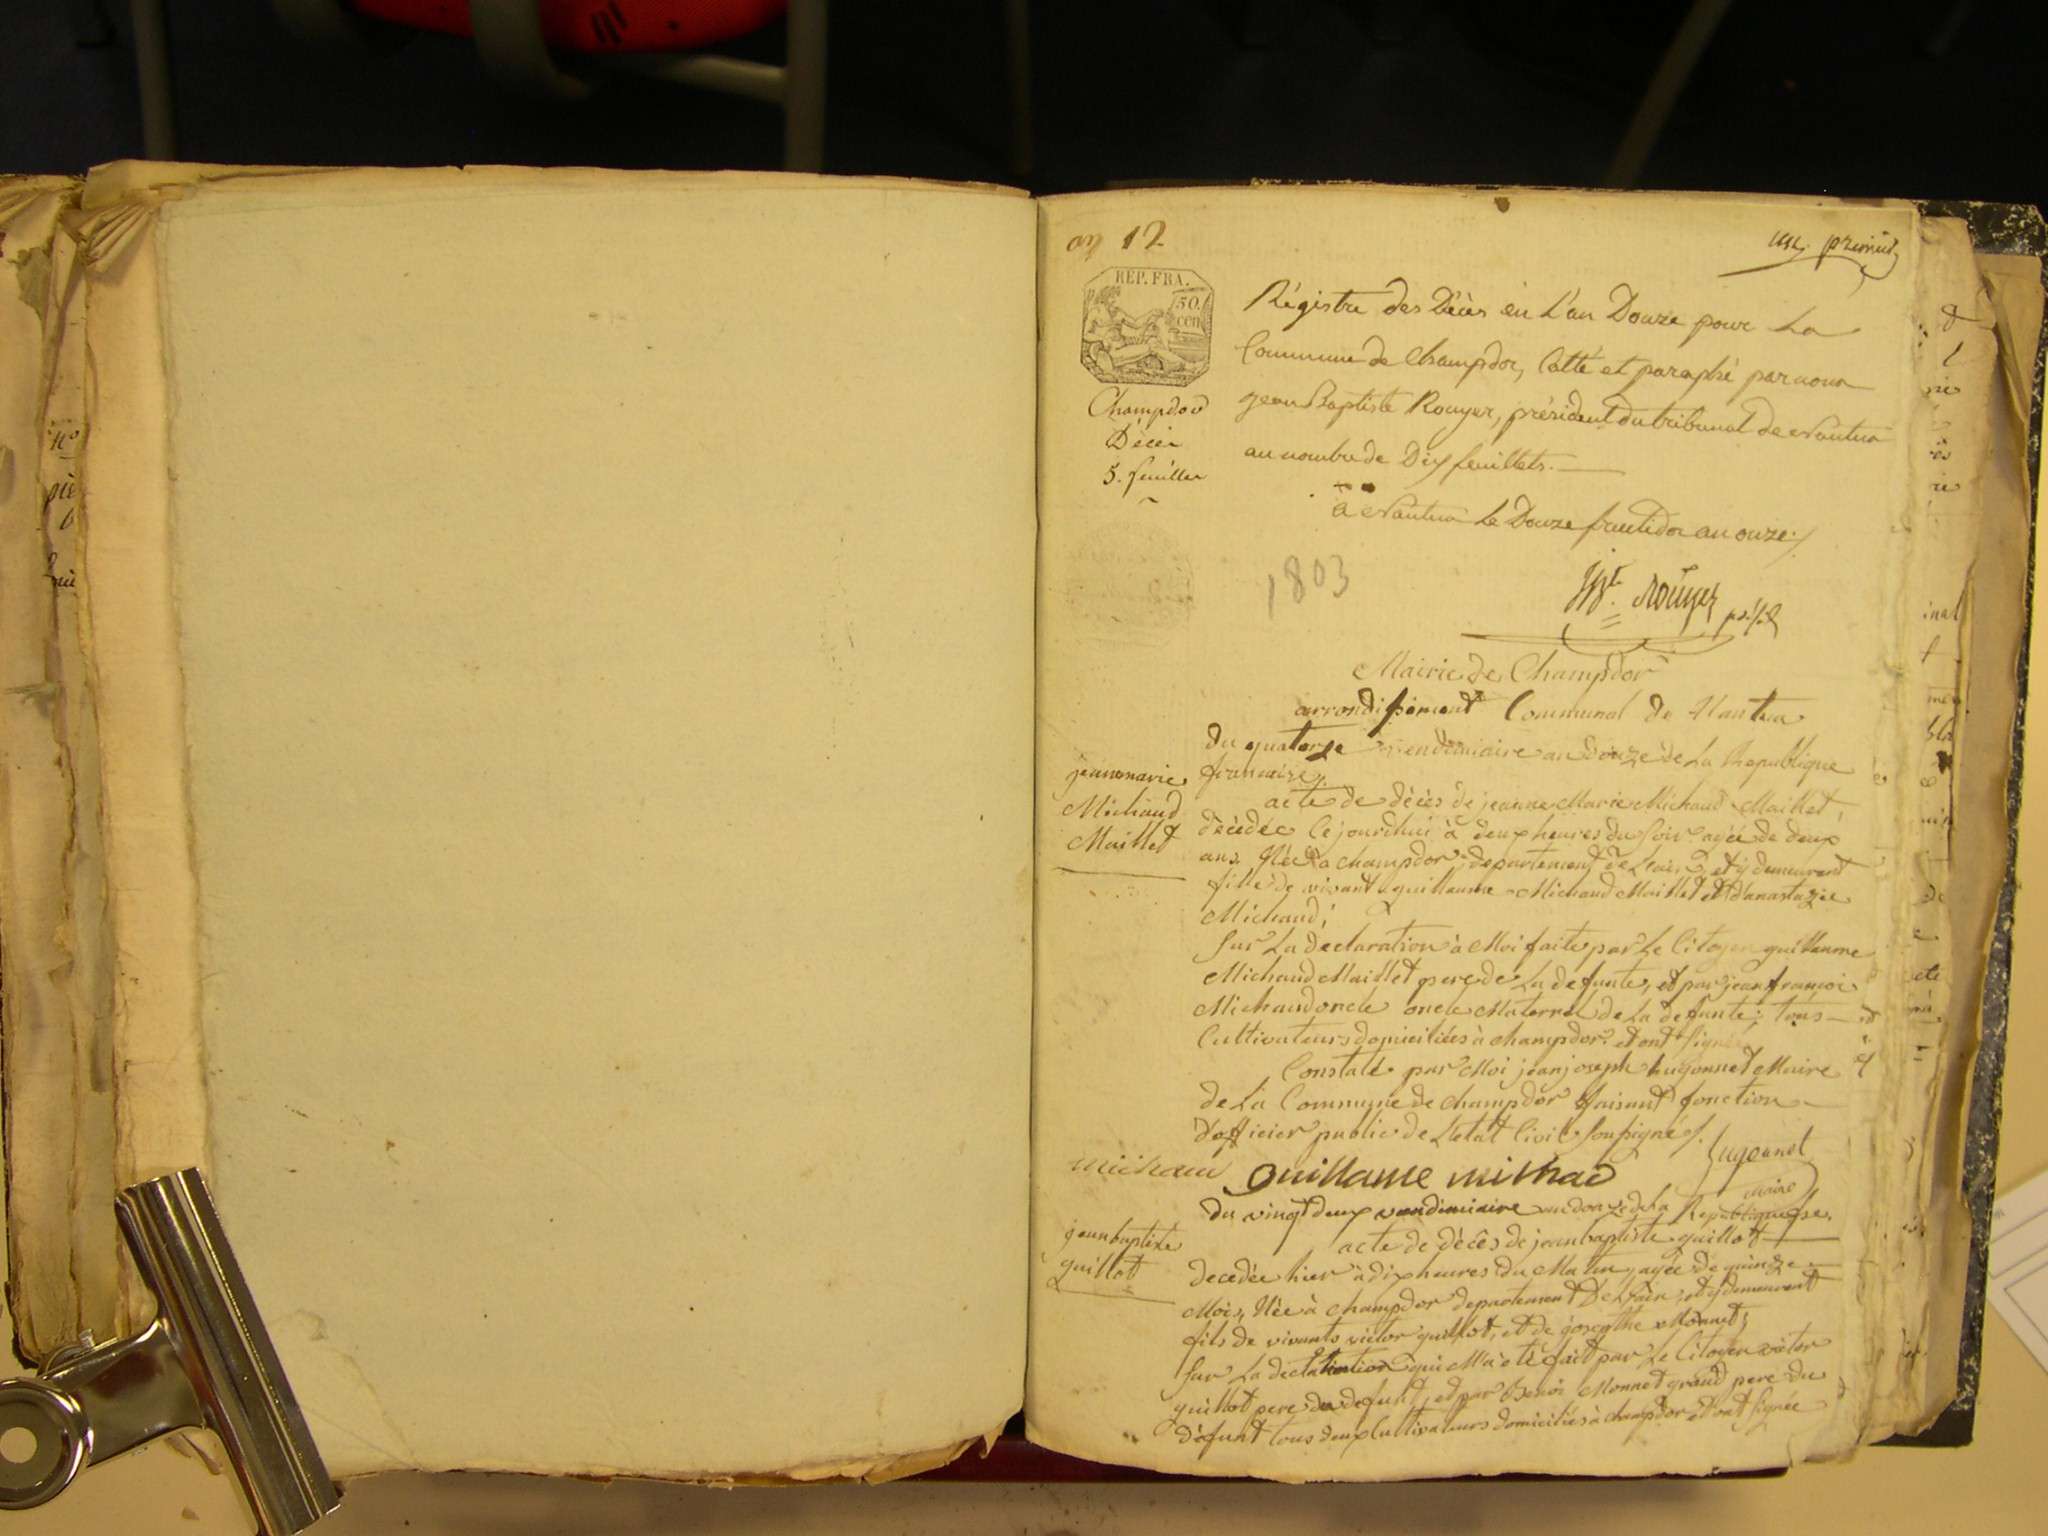 an 12
premier
REP. FRA.
50.
cen
Régistre des Décès en L'an Douze pour La
Commune de Champdor, Cotté et paraphé par nous
Jean Baptiste Rouyer, président du tribunal de Nantua
au nombre de Dix feuillets.
Champdor
Décès
5. feuilles
à Nantua Le Douze fructidor an onze
1803
Rouyer
Mairie de Champdor
arrondissement Communal de Nantua
du quatorze vendemiaire an douze de La Republique
francaise,
jeanne marie
Michaud
Maillet
acte de décès de jeanne Marie Michaud Maillet,
décédée Cejourdhui à deux heures du soir agée de deux
ans. Née à champdor departement de Lain, et y demeurant
fille de vivant guillaume Michaud Maillet et danastazie
Michaud;
sur La declaration à Moi faite par Le Citoyen guillaume
Michaud Maillet pere de La defunte, et par jean francoi
Michaud oncle oncle Maternel de La defunte; tous
Cultivateurs domiciliés à champdor et ont signé
Constaté par Moi jean joseph hugonnet Maire
de La Commune de champdor faisant fonction
d'officier public de Letat Civil soussigné
michau guillame mithad hugonnet
maire
du vingt deux vendimiaire an douze de La Republique
jean baptiste
guillot
acte de décès de jean baptiste guillot
decedée hier à dix heures du Matin, agée de quinze
Mois, Née à champdor departement de Lain, et y demeurant
fils de vivants victor guillot, et de Monnet;
sur La declaration qui Ma eté fait par Le Citoyen victor
guillot pere du defunt, et par Benoi Monnet grand pere du
défunt tous deux Cultivateurs domiciliés à champdor et ont signée